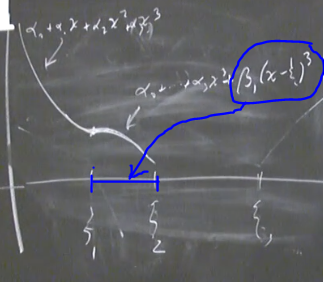 α₀ + α₁x + α₂x² + α₃x³
α₀ + ... + α₃x³ + β₁(x - ξ₁)³
ξ₁ ξ₂ ξ₃